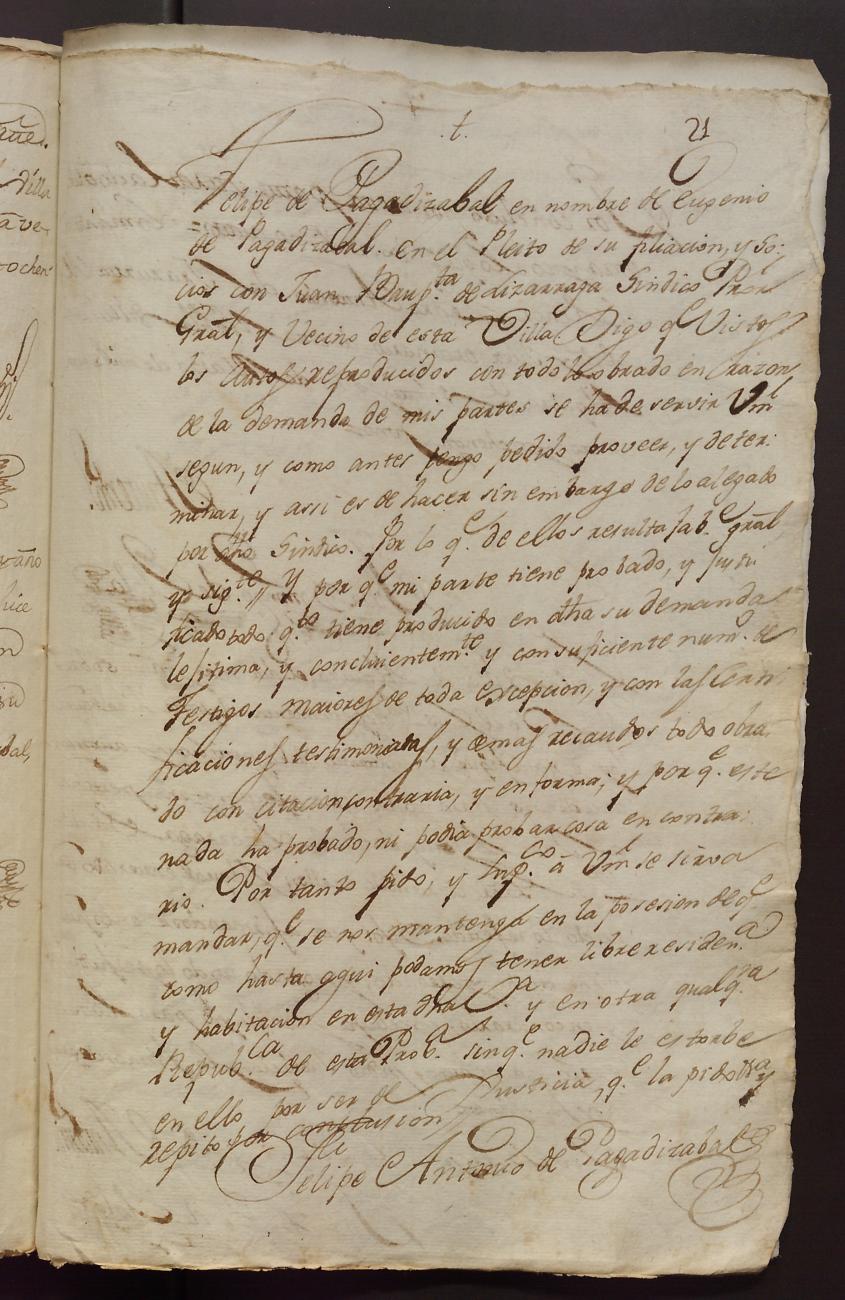 .t. 21
Felipe de Pagadizabal en nombre de Eugenio
de Pagadizabal. en el Pleito de su filiacion, y So:
cios con Juan Baup.ta de Lizarraga Sindico Pror
Gral, y Vecino de esta Villa Digo q.e Vistos
los Autos reproducidos con todo lo obrado en razon
de la demanda de mis partes se ha de servir Vm
segun, y como antes tengo pedido proveer, y deter:
minar, y assi es de hacer sin embargo de lo alegado
por dho Sindico. Por lo q.e de ellos resulta fab.e gral
y sig.te y por q.e mi parte tiene probado, y justi
ficado todo q.to tiene producido en dha su demanda
lesitima, y concluientem.te y con suficiente num.o de
Testigos maiores de toda excepcion, y con las Certi
ficaciones testimoniadas, y demas recaudos todo obra
do con citacion contraria, y en forma; y por q.e este
nada ha probado, ni podia probar cosa en contra:
rio. Por tanto pido, y sup.co â Vm se sirva
mandar, q.e se nos mantenga en la posesion de q.e
como hasta aqui podamos tener libre residen.a
y habitacion en esta dha V.a y en otra qualq.ra
Repub.ca de esta Prob.a sin q.e nadie le estorbe
en ello por ser de Justicia, q.e la pido
repito por conclusion
Felipe Antonio de Pagadizabal